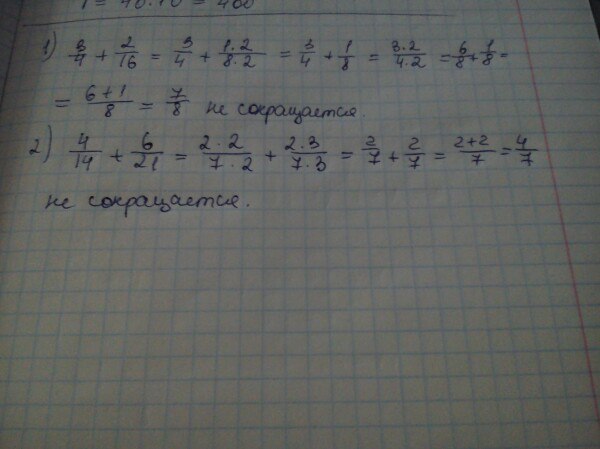 1) 3/4 + 2/16 = 3/4 + 1·2/8·2 = 3/4 + 1/8 = 3·2/4·2 = 6/8 + 1/8 =
= 6+1/8 = 7/8 не сокращается.
2) 4/14 + 6/21 = 2·2/7·2 + 2·3/7·3 = 2/7 + 2/7 = 2+2/7 = 4/7
не сокращается.